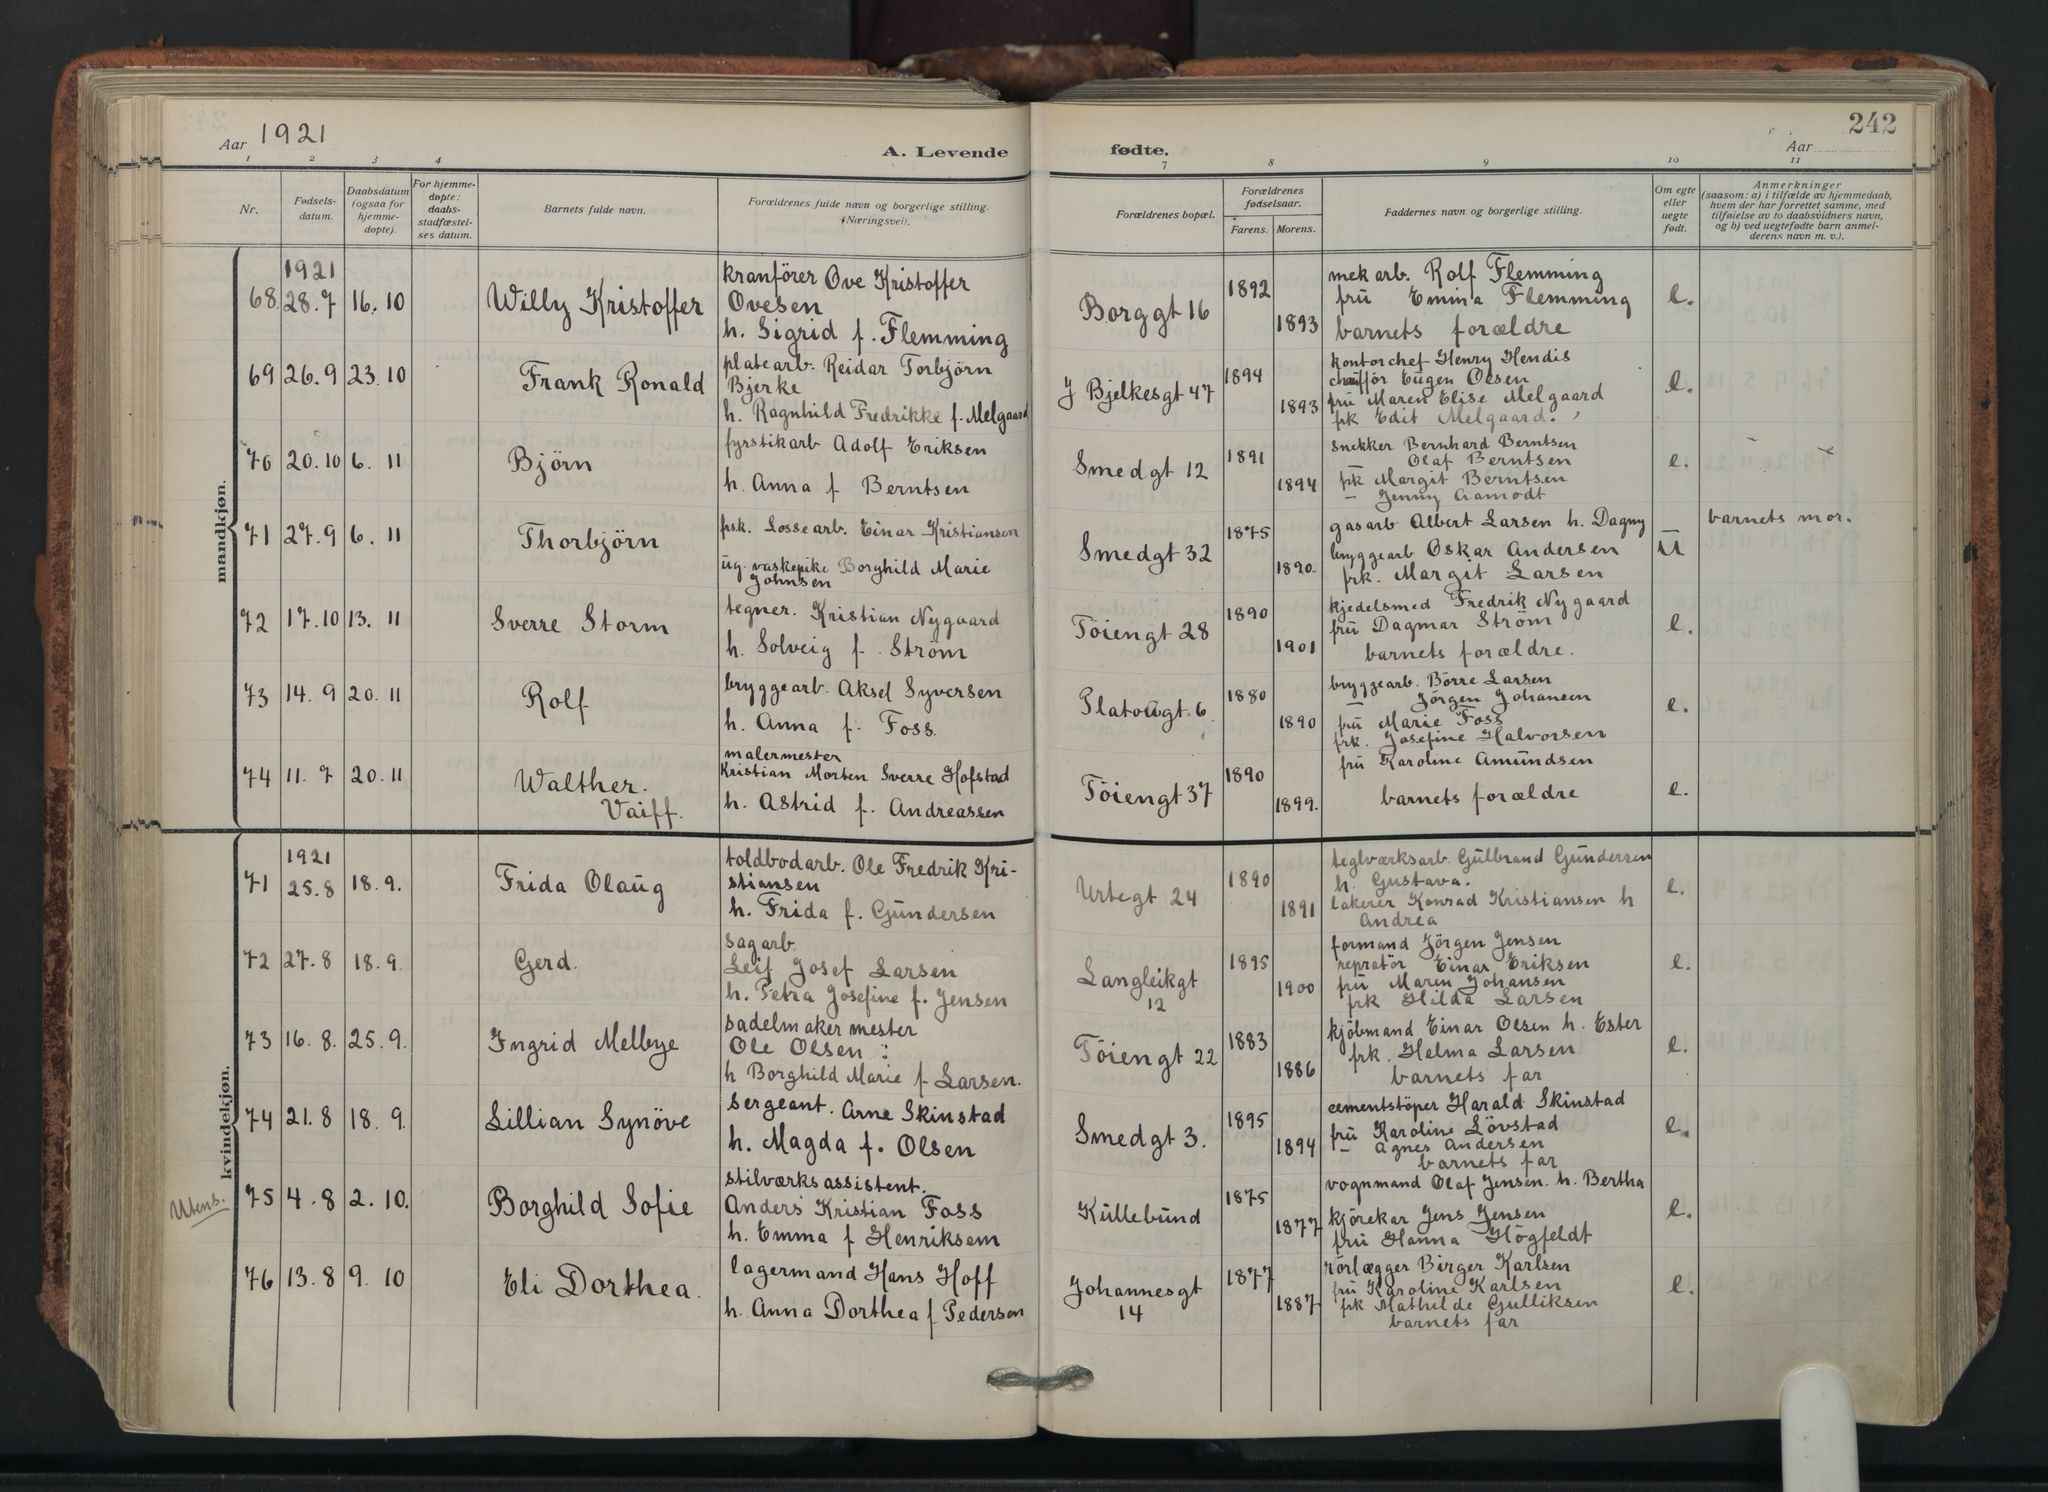 242
Aar 1921
A. Levende fødte.
Aar
1 2 3 4 7 8 9 10 11
Nr.
Fødsels-
datum.
Daabsdatum
(ogsaa for
hjemme-
døpte).
For hjemme-
døpte:
daabs-
stadfæstel-
ses datum.
Barnets fulde navn.
Forældrenes fulde navn og borgerlige stilling.
(Næringsvei).
Forældrenes bopæl.
Forældrenes
fødselsaar.
Farens. Morens.
Faddernes navn og borgerlige stilling.
Om egte
eller
uegte
født.
Anmerkninger
(saasom: a) i tilfælde av hjemmedaab,
hvem der har forrettet samme, med
tilføielse av to daabsvidners navn,
og b) ved uegtefødte barn anmel-
derens navn m. v.).
mandkjøn.
1921
68. 28.7 16. 10
Willy Kristoffer
kranförer Ove Kristoffer
Ovesen
h. Sigrid f. Flemming
Borggt 16
1892
1893
mek arb. Rolf Flemming
fru Emma Flemming
barnets forældre
e.
69 26.9 23. 10
Frank Ronald
platearb. Reidar Torbjörn
Bjerke
h. Ragnhild Fredrikke f. Melgaard
J Bjelkesgt 47
1894
1893
kontorchef Henry Hendis
chauffør Eugen Olsen
fru Maren Elise Melgaard
frk Edit Melgaard.
e.
70 20.10 6. 11
Björn
fyrstikarb Adolf Eriksen
h. Anna f Berntsen
Smedgt 12
1891
1894
snekker Bernhard Berntsen
Olaf Berntsen
frk Margit Berntsen
— Jenny Aamodt
e.
71 27.9 6. 11
Thorbjörn
frsk. Lossearb. Einar Kristiansen
ug. vaskepike Borghild Marie
Johnsen
Smedgt 32
1875
1890.
gasarb Albert Larsen h. Dagny
bryggearb Oskar Andersen
frk. Margit Larsen
U
barnets mor.
72 17.10 13. 11
Sverre Storm
tegner. Kristian Nygaard
h. Solveig f. Ström
Töiengt 28
1890
1901
kjedelsmed Fredrik Nygaard
fru Dagmar Ström
barnets forældre.
e.
73 14.9 20. 11
Rolf
bryggearb. Aksel Syversen
h. Anna f. Foss.
Platougt. 6
1880
1890
bryggearb. Börre Larsen
— Jörgen Johansen
fru Marie Foss
frk. Josefine Halvorsen
e.
74 11.7 20. 11
Walther.
Vaiff.
malermester
Kristian Morten Sverre Hofstad
h. Astrid f. Andreassen
Töiengt 37
1890
1899.
fru Karoline Amundsen
barnets forældre
e.
kvindekjøn.
1921
71 25.8 18.9.
Frida Olaug
toldbodarb. Ole Fredrik Kri-
stiansen
h. Frida f. Gundersen
Urtegt 24
1890
1891
teglværksarb. Gulbrand Gundersen
h. Gustava.
lakerer Konrad Kristiansen h
Andrea
e.
72 27.8 18.9.
Gerd.
sagarb.
Leif Josef Larsen
h. Petra Josefine f. Jensen
Langleikgt
12
1895
1900
formand Jörgen Jensen
repratör Einar Eriksen
fru Maren Johansen
frk Hilda Larsen
e.
73 16.8. 25.9.
Ingrid Melbye
sadelmaker mester
Ole Olsen
h Borghild Marie f Larsen.
Töiengt 22
1883
1886
kjöbmand Einar Olsen h. Ester
frk. Helma Larsen
barnets far
e.
74 21.8 18.9.
Lillian Synöve
sergeant. Arne Skinstad
h. Magda f. Olsen
Smedgt 3.
1895
1894
cementstöper Harald Skinstad
fru Karoline Lövstad
— Agnes Andersen
barnets far
e.
Utens.
75 4.8 2. 10.
Borghild Sofie
stilværksassistent.
Anders Kristian Foss
h. Emma f Henriksem
Kullebund
1875
1877
vognmand Olaf Jensen. h. Bertha
kjörekar Jens Jensen
fru Hanna Högfeldt
e.
76 13.8 9. 10
Eli Dorthea.
lagermand Hans Hoff
h. Anna Dorthea f Pedersen
Johannesgt
14
1877
1887
rörlægger Birger Karlsen
fru Karoline Karlsen
frk Mathilde Gulliksen
barnets far
e.